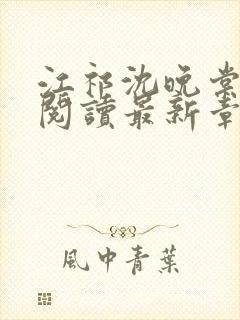 江祁沈晚棠
閱讀最新章
風中青葉